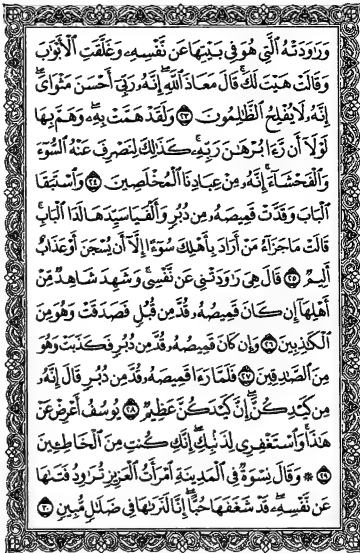 وَرَٰوَدَتْهُ ٱلَّتِي هُوَ فِي بَيْتِهَا عَن نَّفْسِهِۦ وَغَلَّقَتِ ٱلْأَبْوَٰبَ
وَقَالَتْ هَيْتَ لَكَ ۚ قَالَ مَعَاذَ ٱللَّهِ ۖ إِنَّهُۥ رَبِّيٓ أَحْسَنَ مَثْوَايَ ۖ
إِنَّهُۥ لَا يُفْلِحُ ٱلظَّٰلِمُونَ ﴿٢٣﴾ وَلَقَدْ هَمَّتْ بِهِۦ ۖ وَهَمَّ بِهَا
لَوْلَآ أَن رَّءَا بُرْهَٰنَ رَبِّهِۦ ۚ كَذَٰلِكَ لِنَصْرِفَ عَنْهُ ٱلسُّوٓءَ
وَٱلْفَحْشَآءَ ۚ إِنَّهُۥ مِنْ عِبَادِنَا ٱلْمُخْلَصِينَ ﴿٢٤﴾ وَٱسْتَبَقَا
ٱلْبَابَ وَقَدَّتْ قَمِيصَهُۥ مِن دُبُرٍ وَأَلْفَيَا سَيِّدَهَا لَدَا ٱلْبَابِ ۚ
قَالَتْ مَا جَزَآءُ مَنْ أَرَادَ بِأَهْلِكَ سُوٓءًا إِلَّآ أَن يُسْجَنَ أَوْ عَذَابٌ
أَلِيمٌ ﴿٢٥﴾ قَالَ هِيَ رَٰوَدَتْنِي عَن نَّفْسِي ۚ وَشَهِدَ شَاهِدٌ مِّنْ
أَهْلِهَآ إِن كَانَ قَمِيصُهُۥ قُدَّ مِن قُبُلٍ فَصَدَقَتْ وَهُوَ مِنَ
ٱلْكَٰذِبِينَ ﴿٢٦﴾ وَإِن كَانَ قَمِيصُهُۥ قُدَّ مِن دُبُرٍ فَكَذَبَتْ وَهُوَ
مِنَ ٱلصَّٰدِقِينَ ﴿٢٧﴾ فَلَمَّا رَءَا قَمِيصَهُۥ قُدَّ مِن دُبُرٍ قَالَ إِنَّهُۥ
مِن كَيْدِكُنَّ ۖ إِنَّ كَيْدَكُنَّ عَظِيمٌ ﴿٢٨﴾ يُوسُفُ أَعْرِضْ عَنْ
هَٰذَا ۚ وَٱسْتَغْفِرِي لِذَنۢبِكِ ۖ إِنَّكِ كُنتِ مِنَ ٱلْخَاطِـِٔينَ
﴿٢٩﴾ ۞ وَقَالَ نِسْوَةٌ فِي ٱلْمَدِينَةِ ٱمْرَأَتُ ٱلْعَزِيزِ تُرَٰوِدُ فَتَىٰهَا
عَن نَّفْسِهِۦ ۖ قَدْ شَغَفَهَا حُبًّا ۖ إِنَّا لَنَرَىٰهَا فِي ضَلَٰلٍ مُّبِينٍ ﴿٣٠﴾